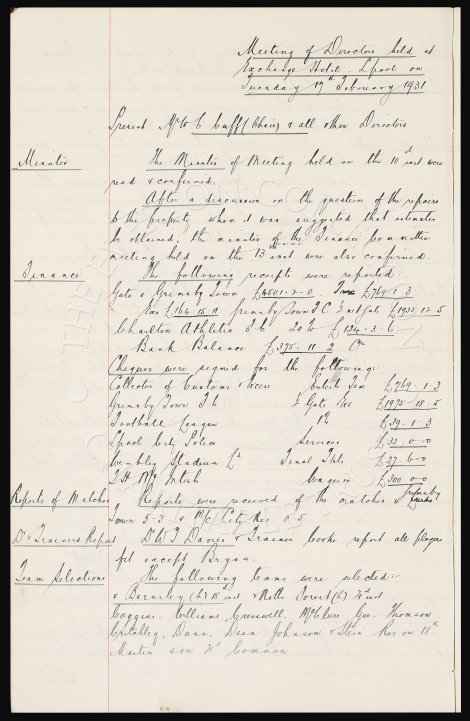 Meeting of Directors held at
Exchange Hotel. L'pool on
Tuesday 17th February 1931
Present Mr W C Cuff (Chair) & all other Directors
Minutes
The Minutes of Meeting held on the 10th inst were
read & confirmed.
After a discussion on the question of the repairs
to the property when it was suggested that estimates
be obtained, the minutes of the Finance Committee
meeting held on the 13th inst were also confirmed.
Finance
The following receipts were reported:
Gate v Grimsby Town £4801-2-0 Tax £769-1-3
Exs £164-15-11 Grimsby Town F C ½ net Gate £1933-12-5
Charlton Athletic F C 20% £134-3-6
Bank Balance £375-11-2 Cr
Cheques were signed for the following:
Collector of Customs & Excise Entertts Tax £769-1-3
Grimsby Town F C ½ Gate Exs £1975-18-5
Football League 1% £39-1-3
L'pool City Police Services £33-0-0
Wembley Stadium Ld Final Tkts £27-6-0
Wages £300-0-0
Reports of Matches
Reports were received of the matches v Grimsby
Town 5.3 & M/c City Res 0.5
Dr & Trainers Report
Dr W F Davies & Trainer Cooke report all players
fit except Bryan.
Team Selections
The following teams were selected:-
v Burnley (h) 18th inst & Notts Forest (h) 21st inst
Coggins. Williams, Cresswell. McClure Gee. Thomson
Critchley, Dunn. Dean Johnson & Stein Res on 18th
Martin & on 21st Common.